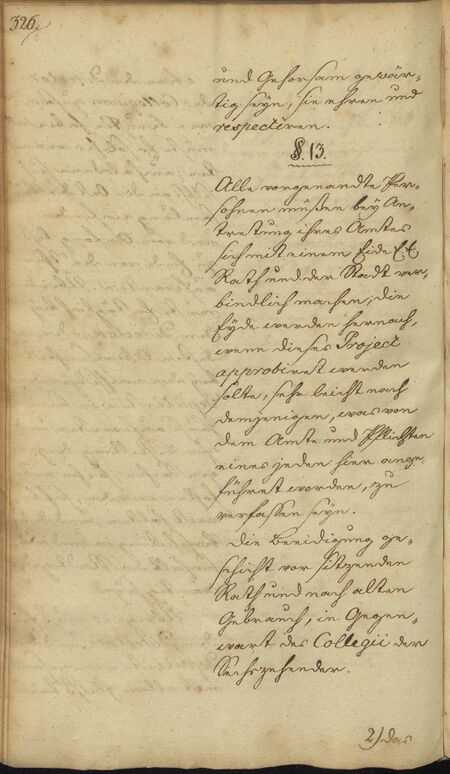 326.
und Gehorsam gewär-
tig seyn, sie ehren und
respectiren.
§. 13.
Alle vorgenandte Per-
sohnen müßen bey An-
tretung ihres Amtes
sich mit einem Eide E. E.
Rath und der Stadt ver-
bindlich machen; die
Eyde werden hernach,
wenn dieses Project
approbiret werden
solte, sehr leicht nach
demjenigen, was von
dem Amte und Pflichten
eines jeden hier ange-
führet worden, zu
verfassen seyn.
Die Beeidigung ge-
schicht vor sitzenden
Rath und nach alten
Gebrauch, in Gegen-
wart des Collegii der
Sechszehender.
2) das